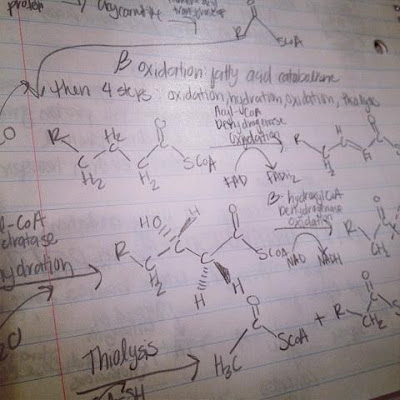 protein
R
SCoA
β oxidation fatty acid catabolism
then 4 steps: oxidation, hydration, oxidation, thiolysis
R H2 C O
C H2 C H2 SCoA
Acyl-CoA
Dehydrogenase
Oxidation
FAD FADH2
R C H2 H C C H O
-CoA
dratase
hydration
HO H O
R C H2 C C SCoA
H H
β-hydroxyl CoA
Dehydrogenase
Oxidation
NAD NADH
R C H2
Thiolysis
-SH
O
H3C SCoA + R CH2 O